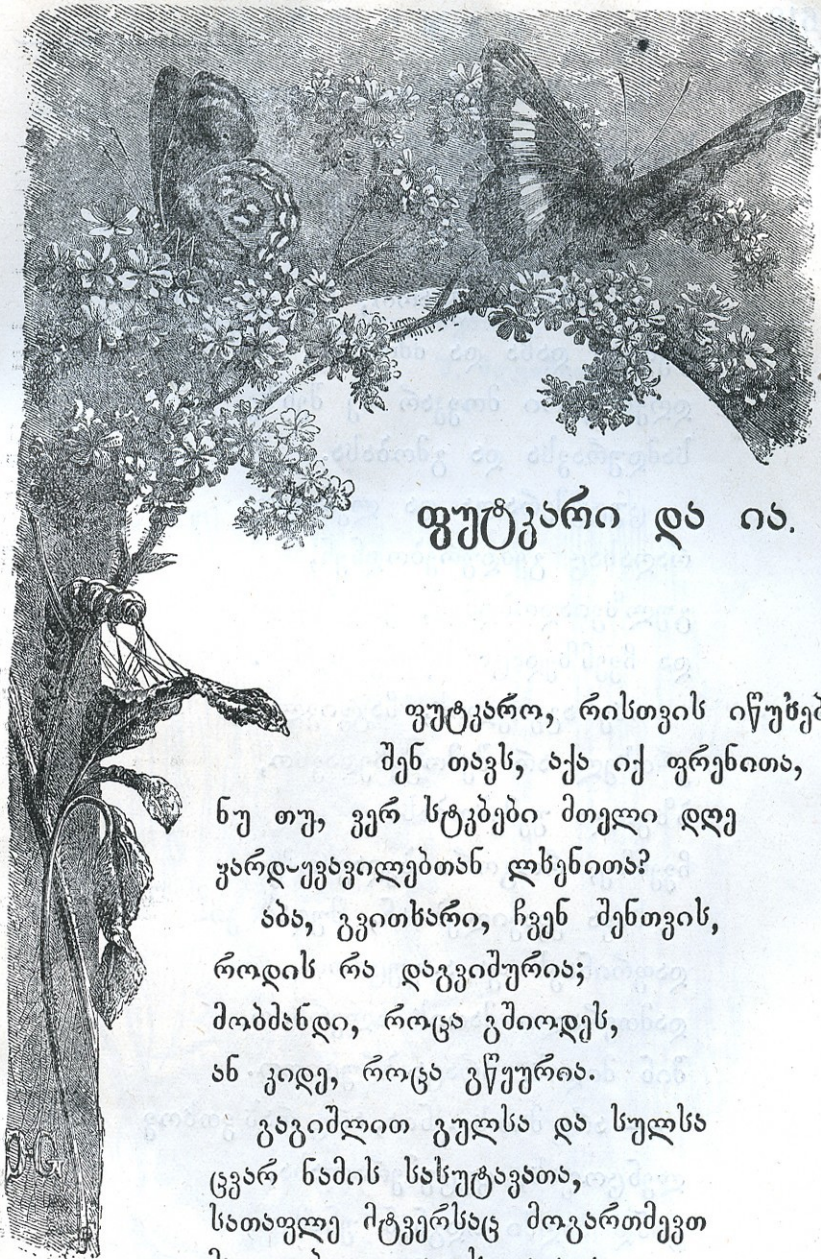 ფუტკარი და ია.
ფუტკარო, რისთვის იწუხებ
შენ თავს, აქა იქ ფრენითა,
ნუ თუ, ვერ სტკბები მთელი დღე
ყარდ-ყვავილებთან ლხენითა?
აბა, გვითხარი, ჩვენ შენთვის,
როდის რა დაგვიშურია;
მობძანდი, როცა გშიოდეს,
ან კიდე, როცა გწყურია.
გაგიშლით გულსა და სულსა
ცვარ ნამის სასუტავათა,
სათაფლე მტვერსაც მოგართმევთ
O-G